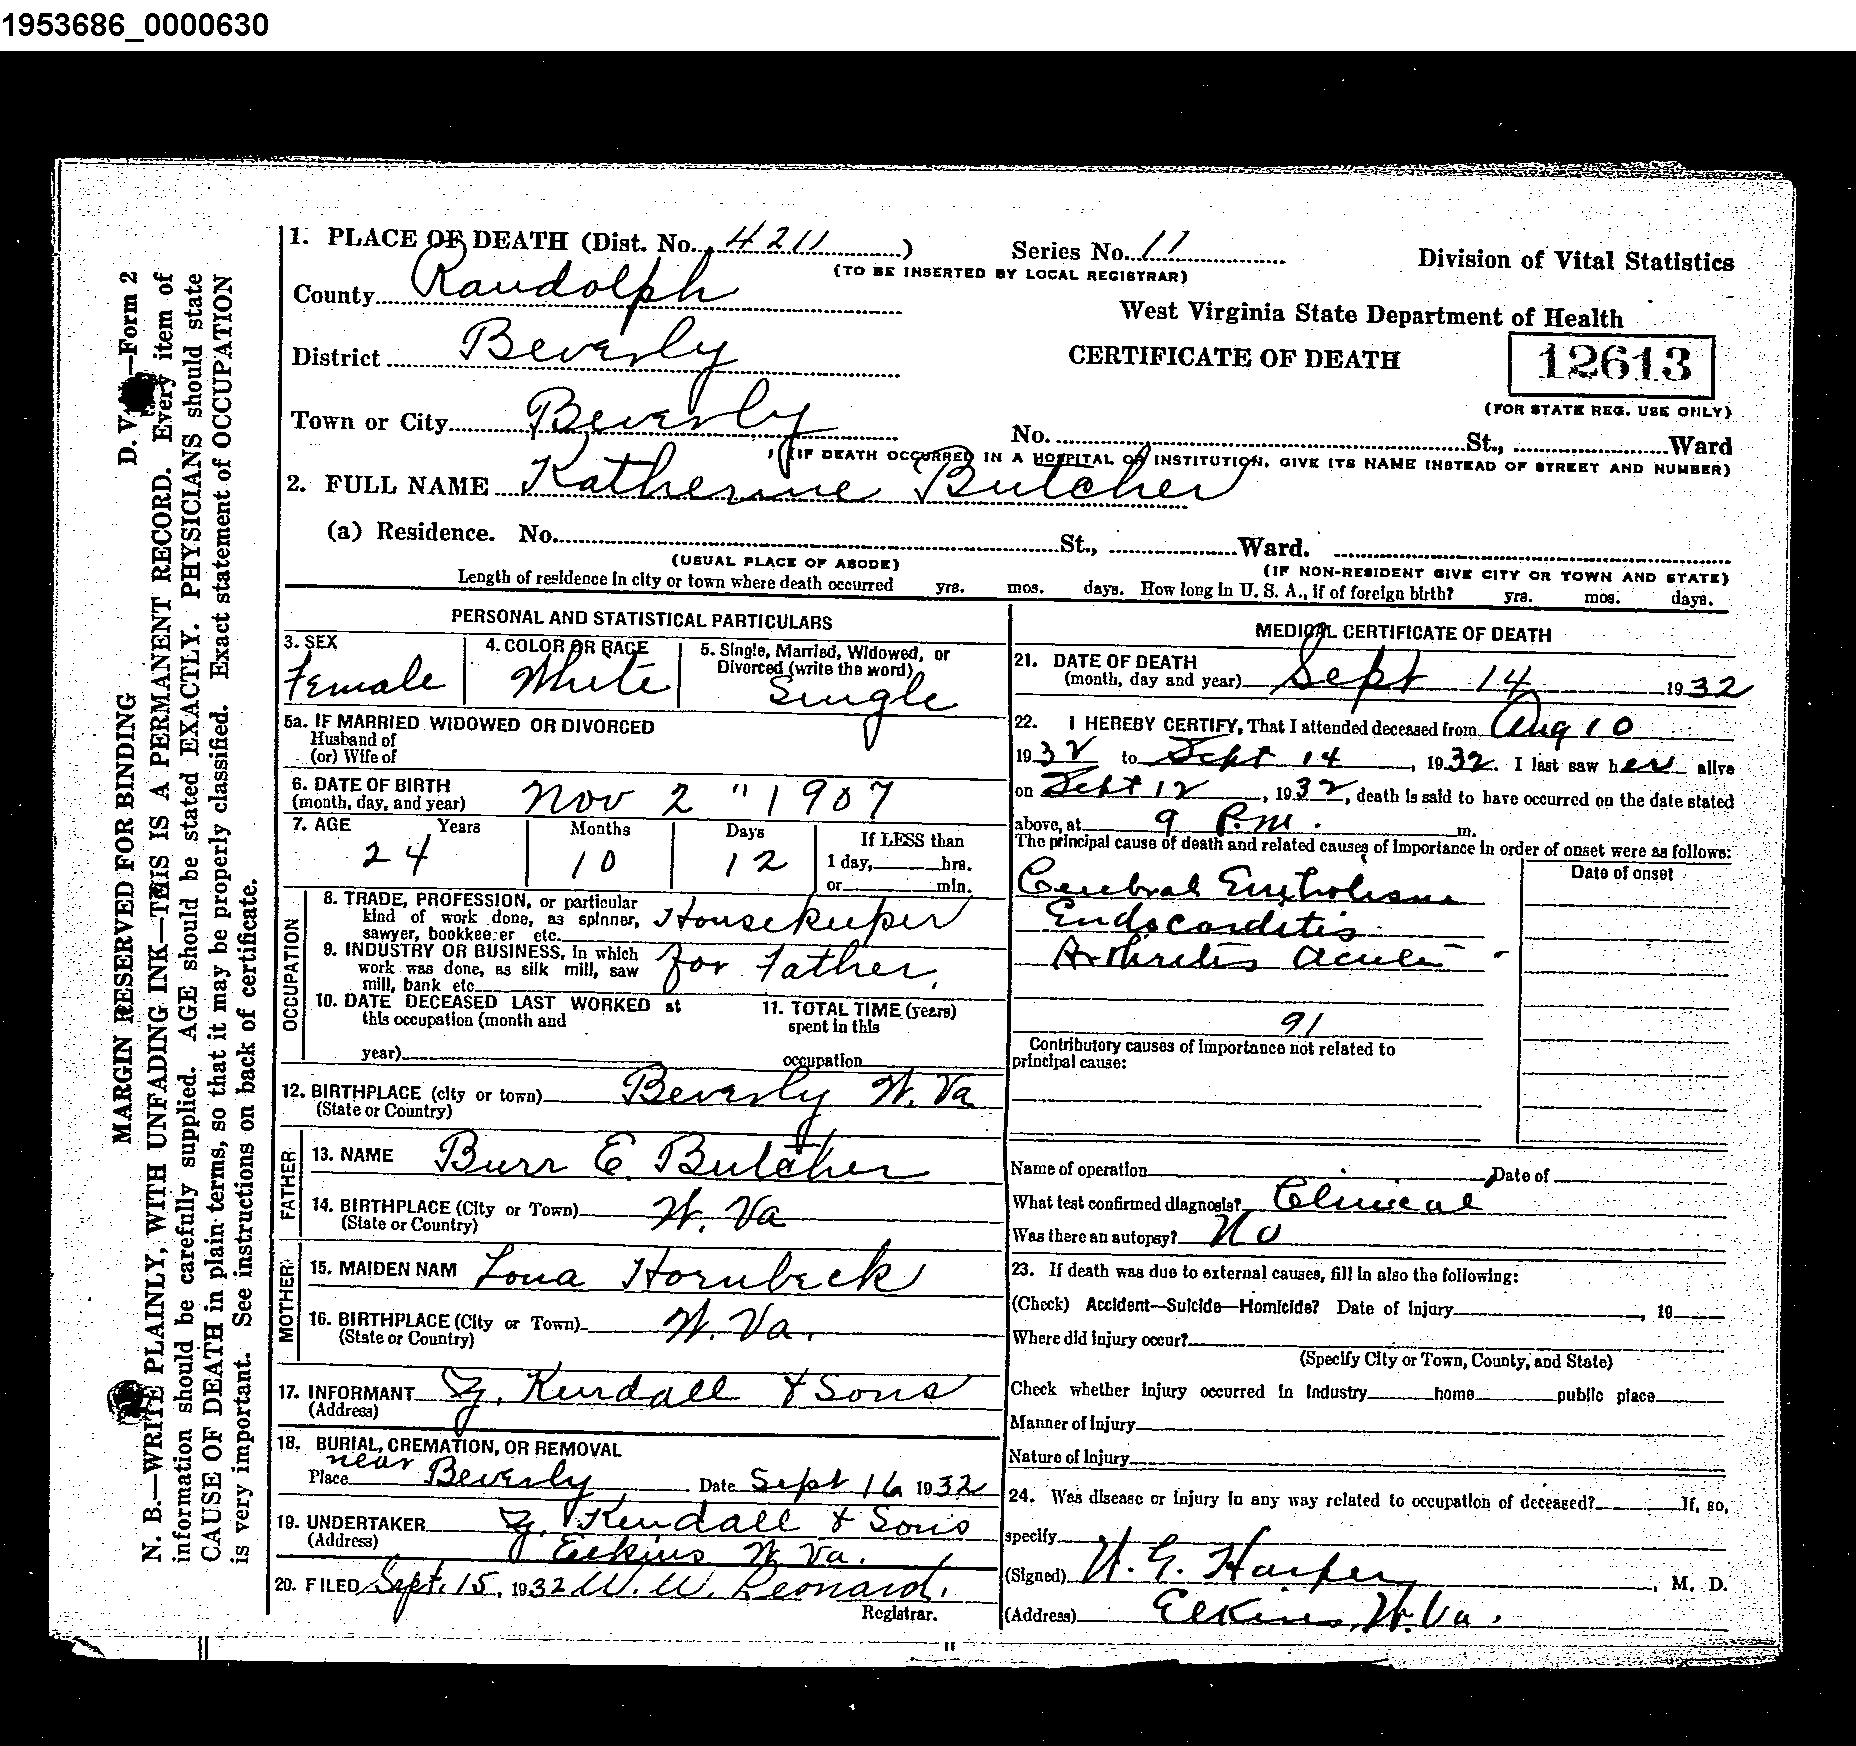 1953686_0000630
1. PLACE OF DEATH (Dist. No. 4211)
Series No. 11
(TO BE INSERTED BY LOCAL REGISTRAR)
Division of Vital Statistics
County Randolph
West Virginia State Department of Health
District Beverly
CERTIFICATE OF DEATH
12613
(FOR STATE REG. USE ONLY)
Town or City Beverly
No. St., Ward
(IF DEATH OCCURRED IN A HOSPITAL OR INSTITUTION, GIVE ITS NAME INSTEAD OF STREET AND NUMBER)
2. FULL NAME Katherine Butcher
(a) Residence. No. St., Ward.
(USUAL PLACE OF ABODE)
(IF NON-RESIDENT GIVE CITY OR TOWN AND STATE)
Length of residence in city or town where death occurred yrs. mos. days. How long in U. S. A., if of foreign birth? yrs. mos. days.
PERSONAL AND STATISTICAL PARTICULARS
3. SEX
Female
4. COLOR OR RACE
White
5. Single, Married, Widowed, or
Divorced (write the word)
Single
5a. IF MARRIED WIDOWED OR DIVORCED
Husband of
(or) Wife of
6. DATE OF BIRTH
(month, day, and year) Nov 2 " 1907
7. AGE Years Months Days
24 10 12
If LESS than
1 day, hrs.
or min.
OCCUPATION
8. TRADE, PROFESSION, or particular
kind of work done, as spinner,
sawyer, bookkeeper etc. Housekeeper
9. INDUSTRY OR BUSINESS, in which
work was done, as silk mill, saw
mill, bank etc. for Father.
10. DATE DECEASED LAST WORKED at
this occupation (month and
year)
11. TOTAL TIME (years)
spent in this
occupation
12. BIRTHPLACE (city or town) Beverly W. Va
(State or Country)
FATHER
13. NAME Burr E. Butcher
14. BIRTHPLACE (City or Town) W. Va
(State or Country)
MOTHER
15. MAIDEN NAM Lona Hornbeck
16. BIRTHPLACE (City or Town) W. Va.
(State or Country)
17. INFORMANT Kendall & Sons
(Address)
18. BURIAL, CREMATION, OR REMOVAL
Place near Beverly Date Sept 16 1932
19. UNDERTAKER Kendall & Sons
(Address) Elkins W. Va.
20. FILED Sept. 15, 1932 W. W. Leonard.
Registrar.
MEDICAL CERTIFICATE OF DEATH
21. DATE OF DEATH
(month, day and year) Sept 14 1932
22. I HEREBY CERTIFY, That I attended deceased from Aug 10
1932 to Sept 14, 1932. I last saw her alive
on Sept 12, 1932, death is said to have occurred on the date stated
above, at 9 P.m. m.
The principal cause of death and related causes of importance in order of onset were as follows:
Date of onset
Cerebral Embolism
Endocarditis
Arthritis acute
91
Contributory causes of importance not related to
principal cause:
Name of operation Date of
What test confirmed diagnosis? Clinical
Was there an autopsy? No
23. If death was due to external causes, fill in also the following:
(Check) Accident—Suicide—Homicide? Date of Injury , 19
Where did injury occur?
(Specify City or Town, County, and State)
Check whether injury occurred in industry home public place
Manner of Injury
Nature of Injury
24. Was disease or injury in any way related to occupation of deceased? If, so,
specify
(Signed) W. G. Harper, M. D.
(Address) Elkins, W. Va.
D. V. —Form 2
MARGIN RESERVED FOR BINDING
N. B.—WRITE PLAINLY, WITH UNFADING INK—THIS IS A PERMANENT RECORD. Every item of
information should be carefully supplied. AGE should be stated EXACTLY. PHYSICIANS should state
CAUSE OF DEATH in plain terms, so that it may be properly classified. Exact statement of OCCUPATION
is very important. See instructions on back of certificate.